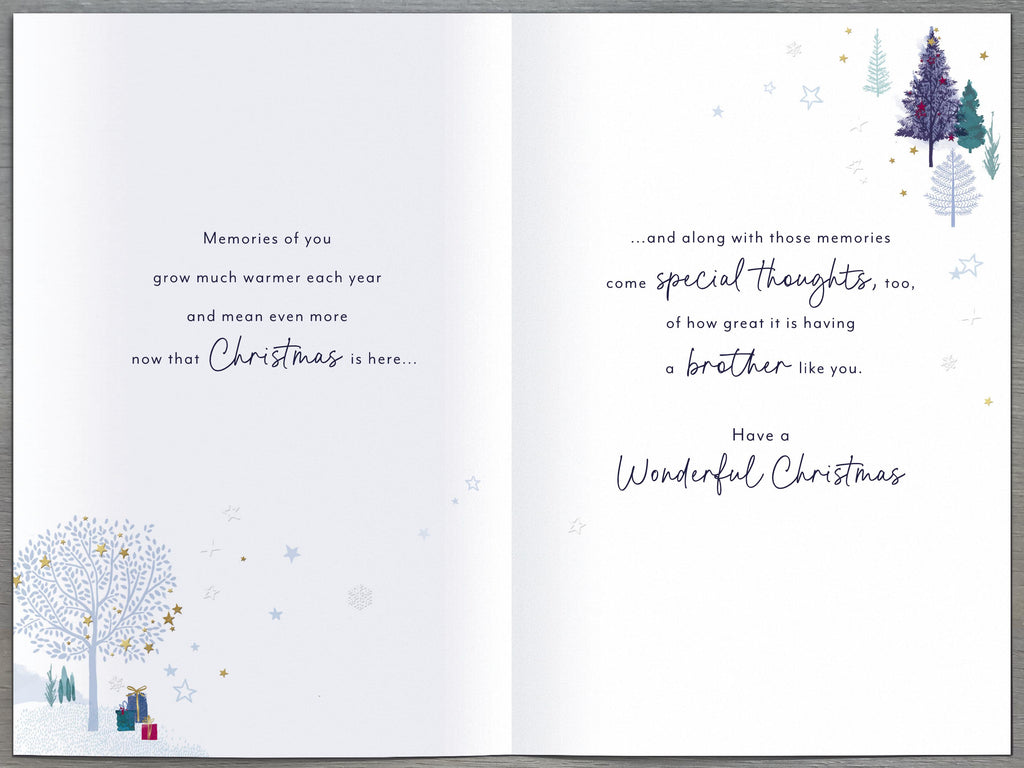 Memories of you
grow much warmer each year
and mean even more
now that Christmas is here...
...and along with those memories
come special thoughts, too,
of how great it is having
a brother like you.
Have a
Wonderful Christmas